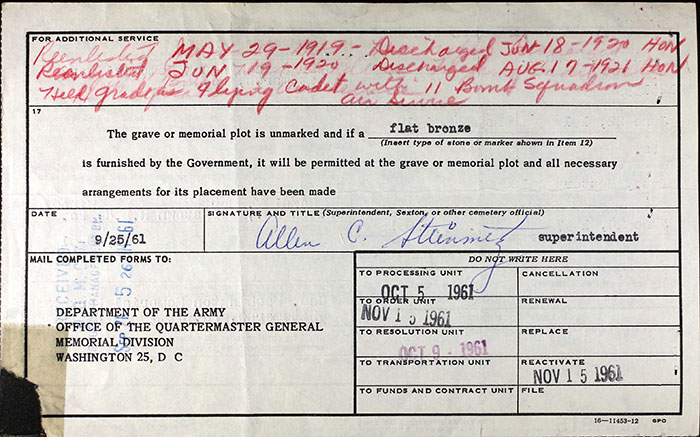 FOR ADDITIONAL SERVICE
Reenlisted MAY 29-1919- Discharged JUN-18-1920 HON
Reenlisted JUN-19-1920 Discharged AUG.17-1921 HON.
Held grade as Flying Cadet with 11 Bomb Squadron
Air
17
The grave or memorial plot is unmarked and if a flat bronze
(Insert type of stone or marker shown in Item 12)
is furnished by the Government, it will be permitted at the grave or memorial plot and all necessary
arrangements for its placement have been made
DATE
9/25/61
SIGNATURE AND TITLE (Superintendent, Sexton, or other cemetery official)
Allen C. Steinmetz superintendent
MAIL COMPLETED FORMS TO:
DEPARTMENT OF THE ARMY
OFFICE OF THE QUARTERMASTER GENERAL
MEMORIAL DIVISION
WASHINGTON 25, D C
DO NOT WRITE HERE
TO PROCESSING UNIT
OCT 5 1961
CANCELLATION
TO ORDER UNIT
NOV 15 1961
RENEWAL
TO RESOLUTION UNIT
OCT 9 - 1961
REPLACE
TO TRANSPORTATION UNIT
REACTIVATE
NOV 15 1961
TO FUNDS AND CONTRACT UNIT
FILE
16—11453-12 GPO